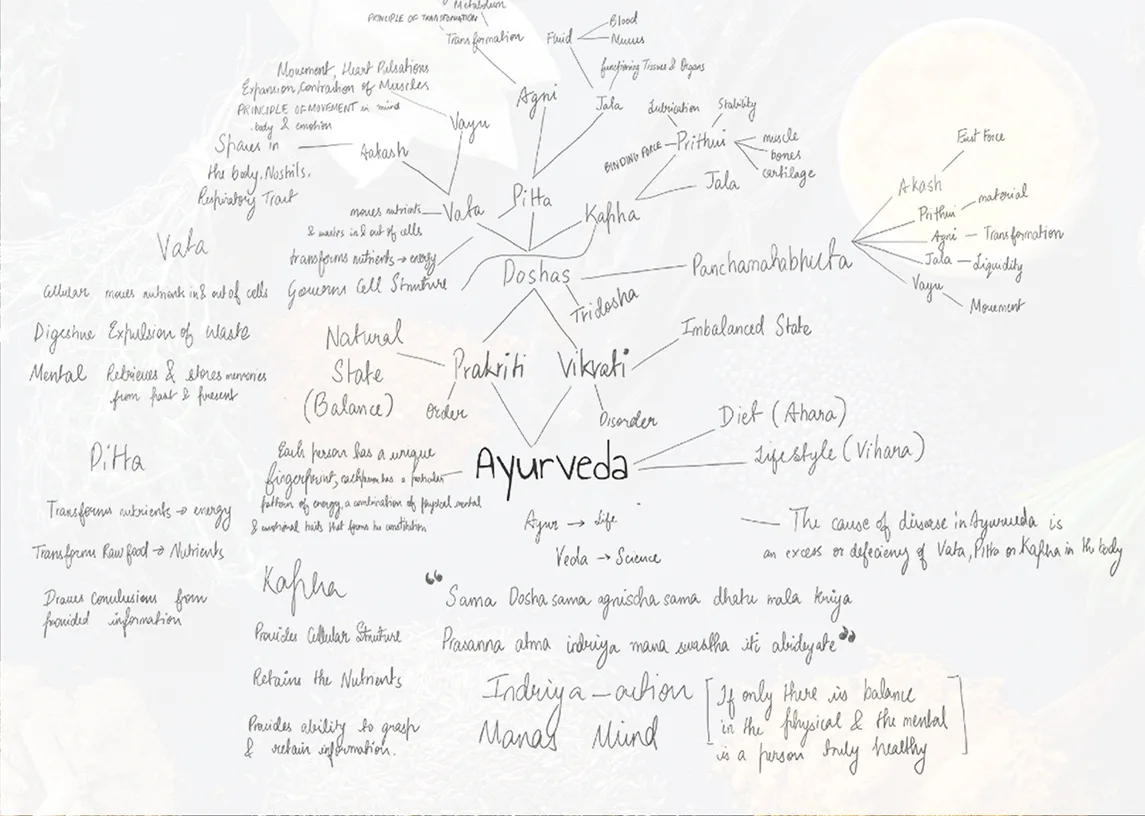 Metabolism
PRINCIPLE OF TRANSFORMATION
Transformation
Fluid
Blood
Mucus
functioning Tissues & Organs
Agni
Jala
Movement, Heart Pulsations
Expansion, Contraction of Muscles
PRINCIPLE OF MOVEMENT in mind
body & emotion
Vayu
Spaces in
the body, Nostrils,
Respiratory Tract
Aakash
Lubrication
Stability
BINDING FORCE
Prithvi
muscle
bones
cartilage
Jala
Vata
Pitta
Kapha
moves nutrients
& wastes in & out of cells
transforms nutrients → energy
Governs Cell Structure
Doshas
Tridosha
Panchamahabhuta
Akash
Prithvi
material
Agni — Transformation
Jala — Liquidity
Vayu
Movement
Vata
Cellular moves nutrients in & out of cells
Digestive Expulsion of Waste
Mental Retrieves & stores memories
from past & present
Natural
State
(Balance)
Prakriti
Order
Vikrati
Disorder
Imbalanced State
Ayurveda
Diet (Ahara)
Lifestyle (Vihara)
Each person has a unique
fingerprint, each person has a particular
pattern of energy, a combination of physical mental
& emotional traits that forms the constitution
Ayur → Life
Veda → Science
The cause of disease in Ayurveda is
an excess or deficieny of Vata, Pitta or Kapha in the body
Pitta
Transforms nutrients → energy
Transforms Raw food → Nutrients
Draws Conclusions from
provided information
Kapha
Provides Cellular Structure
Retains the Nutrients
Provides ability to grasp
& retain information.
“Sama Dosha sama agnischa sama dhatu mala kriya
Prasanna atma indriya mana swastha iti abideyate”
Indriya — action
Manas Mind
[If only there is balance
in the physical & the mental
is a person truly healthy]